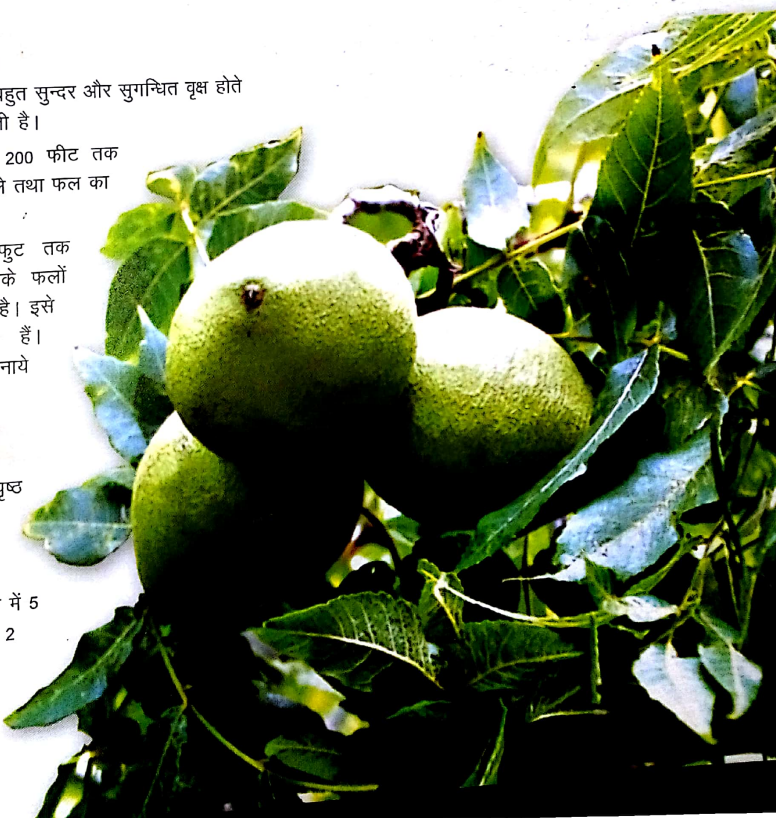 बहुत सुन्दर और सुगन्धित वृक्ष होते
है।
200 फीट तक
तथा फल का
फुट तक
के फलों
है। इसे
हैं।
में 5
2